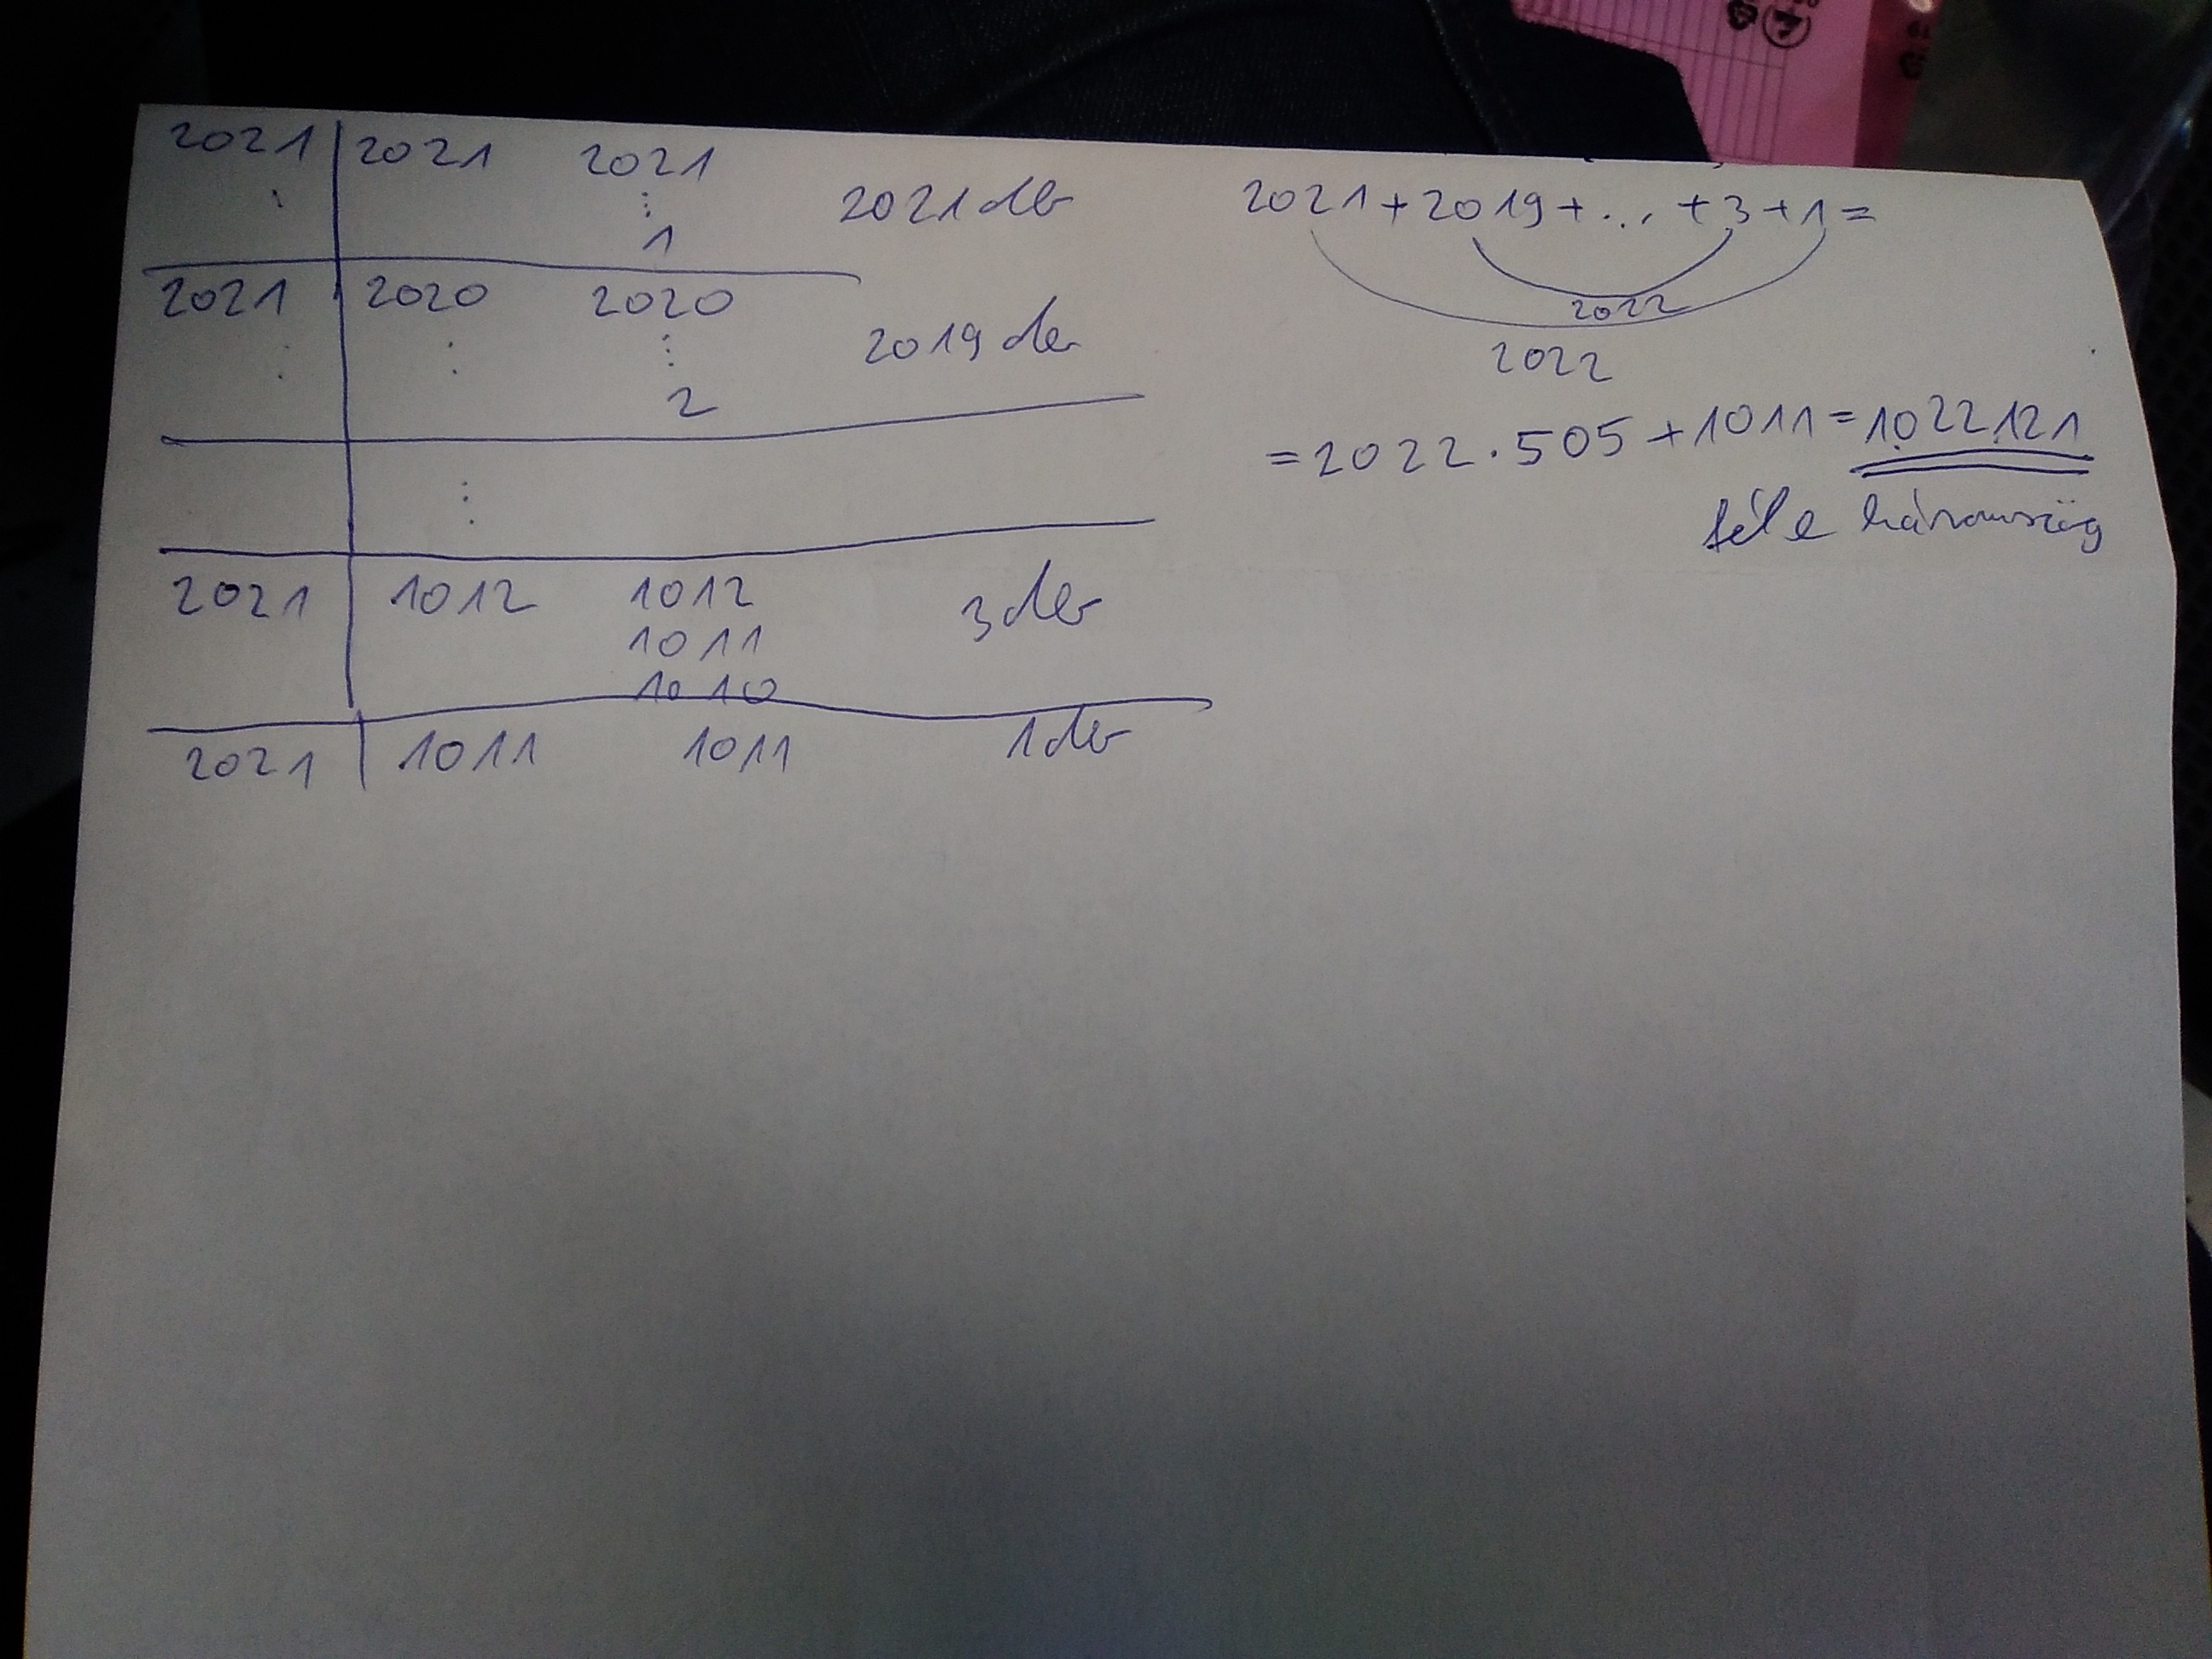 2021 2021 2021
⋮
1
2021 db
2021 2020 2020
⋮
2
2019 db
⋮
2021 1012 1012
1011
1010
3 db
2021 1011 1011 1 db
2021+2019+...+3+1=
2022
2022
=2022·505+1011=1022121
féle háromszög